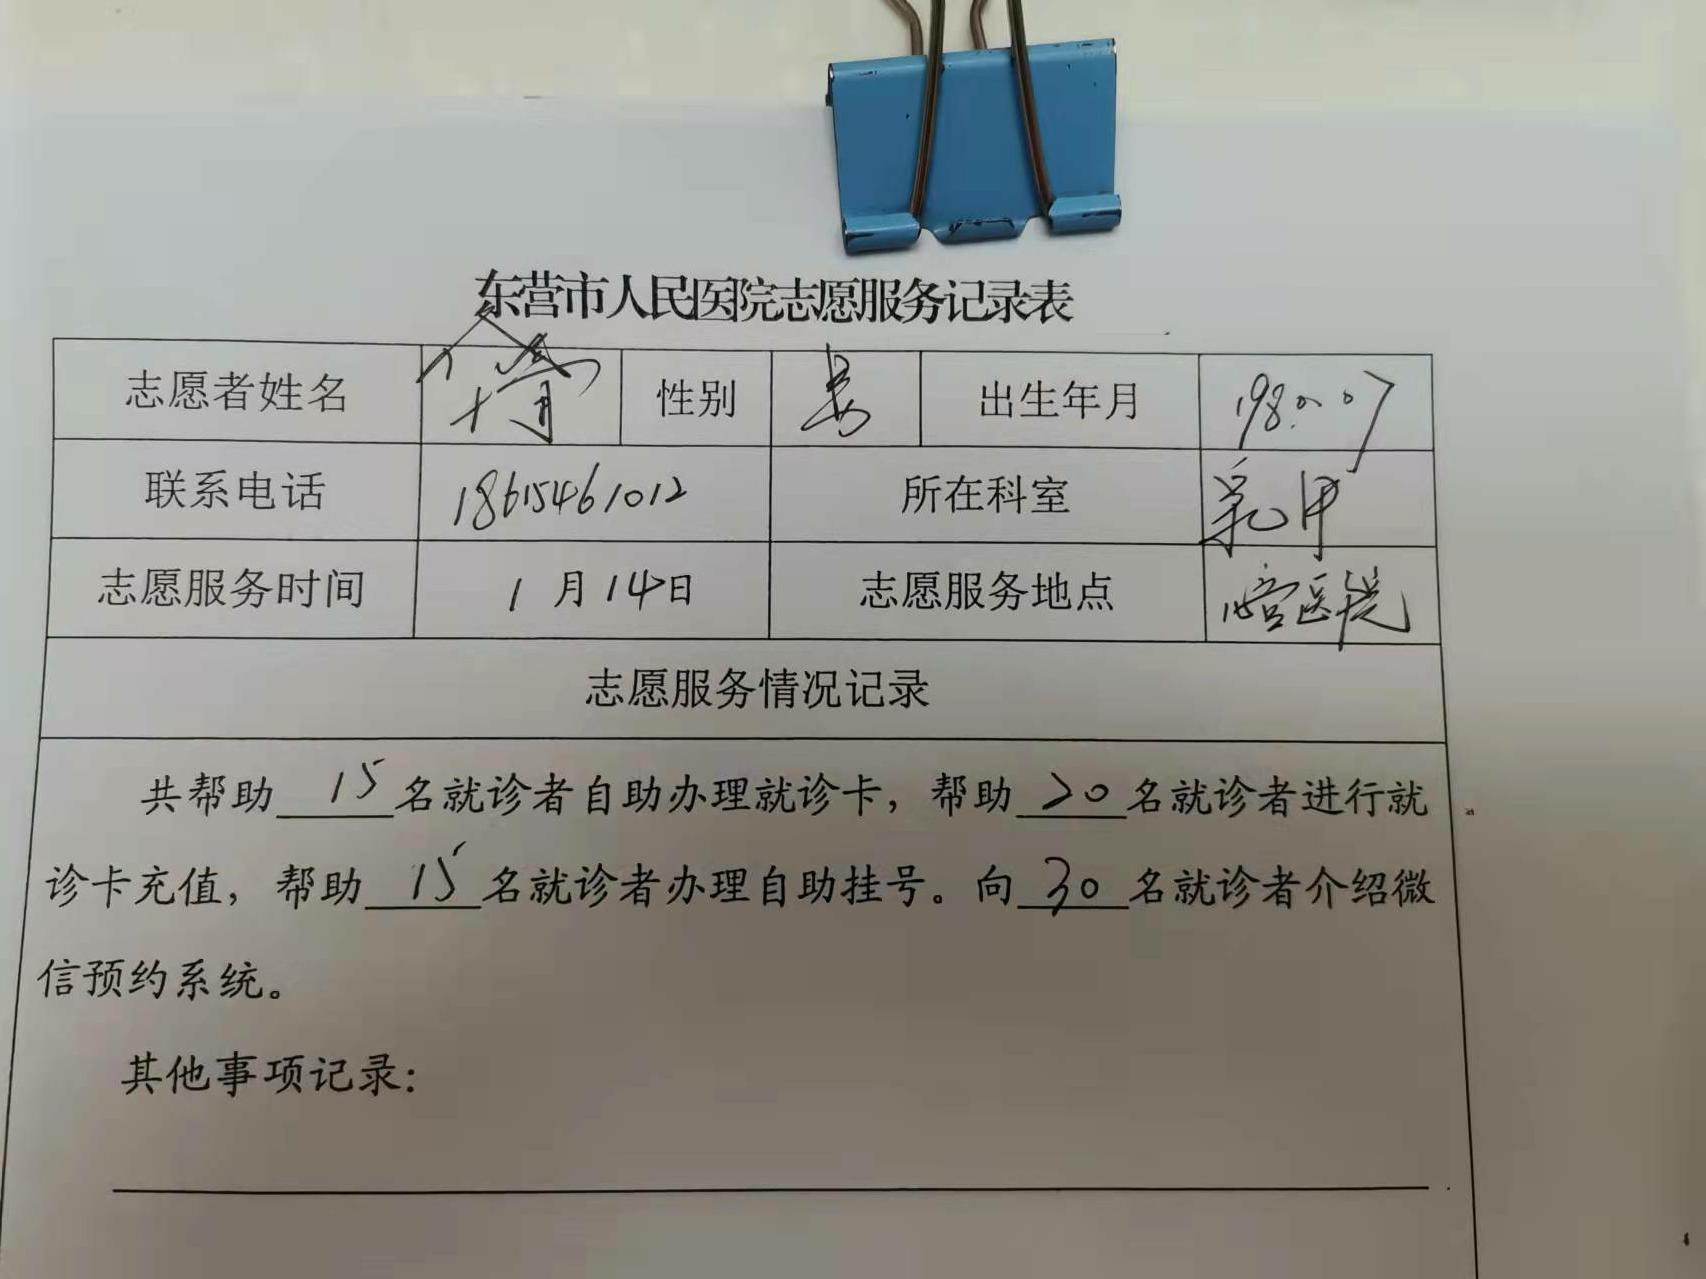 东营市人民医院志愿服务记录表
志愿者姓名 性别 男 出生年月 1980.07
联系电话 18615461012 所在科室 乳甲
志愿服务时间 1月14日 志愿服务地点 医院
志愿服务情况记录
共帮助 15 名就诊者自助办理就诊卡，帮助 20 名就诊者进行就
诊卡充值，帮助 15 名就诊者办理自助挂号。向 30 名就诊者介绍微
信预约系统。
其他事项记录：